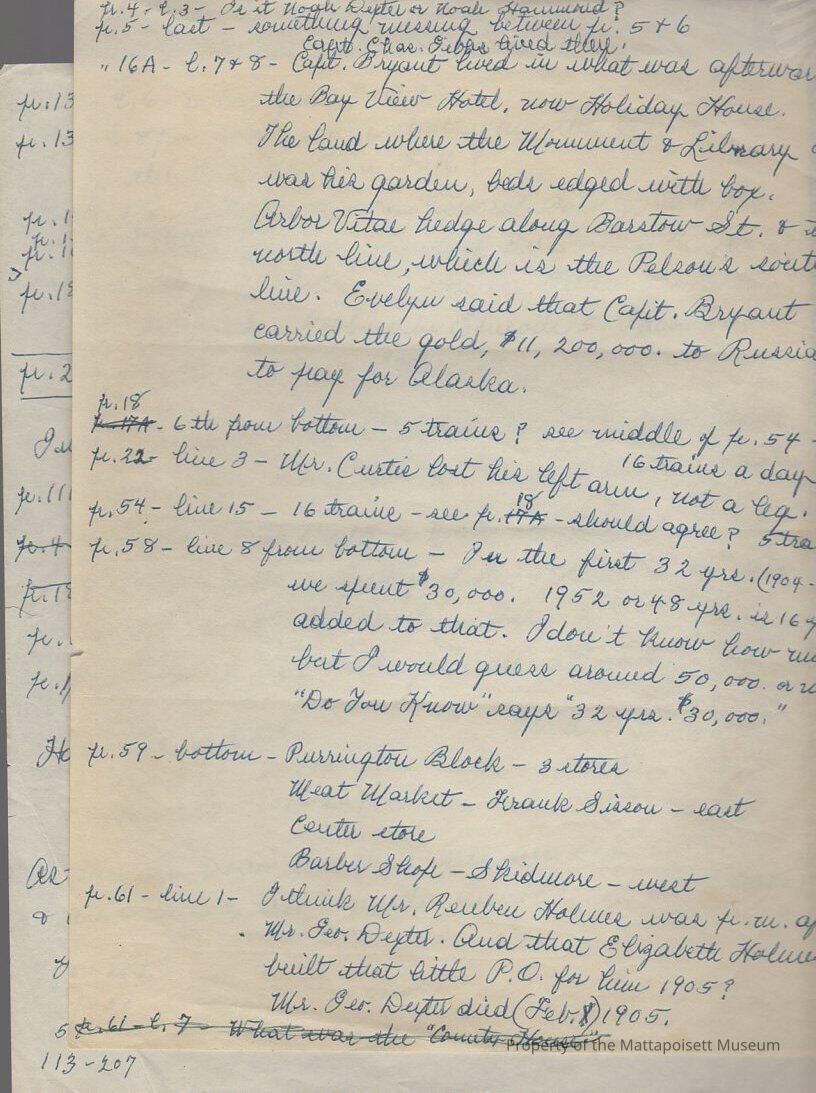 p. 4 - l. 3 - Is it Noah Dexter or Noah Hammond?
p. 5 - last - something missing between p. 5 & 6
Capt. Chas. lived there.
" 16A - l. 7 & 8 - Capt. Bryant lived in what was afterwar
the Bay View Hotel, now Holiday House.
The land where the Monument & Library
was his garden, beds edged with box.
Arbor Vitae hedge along Barstow St. &
north line, which is the Pelson's sout
line. Evelyn said that Capt. Bryant
carried the gold, $11,200,000. to Russia
to pay for Alaska.
p. 18
p. 17A - 6th from bottom - 5 trains? see middle of p. 54 -
16 trains a day
p. 22 - line 3 - Mr. Curtis lost his left arm, not a leg.
18
p. 54 - line 15 - 16 trains - see p. 17A - should agree? 5 tra
p. 58 - line 8 from bottom - In the first 32 yrs. (1904-
we spent $30,000. 1952 or 48 yrs. is 16 y
added to that. I don't know how mu
but I would guess around 50,000. or
"Do You Know" says "32 yrs. $30,000."
p. 59 - bottom - Purrington Block - 3 stores
Meat Market - Frank Sisson - east
Center store
Barber Shop - Skidmore - west
p. 61 - line 1 - I think Mr. Reuben Holmes was p.m. af
Mr. Geo. Dexter. And that Elizabeth Holme
built that little P.O. for him 1905?
Mr. Geo. Dexter died (Feb. ) 1905.
5 p. 61 - l. 7 - What was the "County House"
113-207
p. 13
p. 13
p. 1
p. 18
p. 2
p. 111
p. 4
p. 18
Ho
&
Property of the Mattapoisett Museum